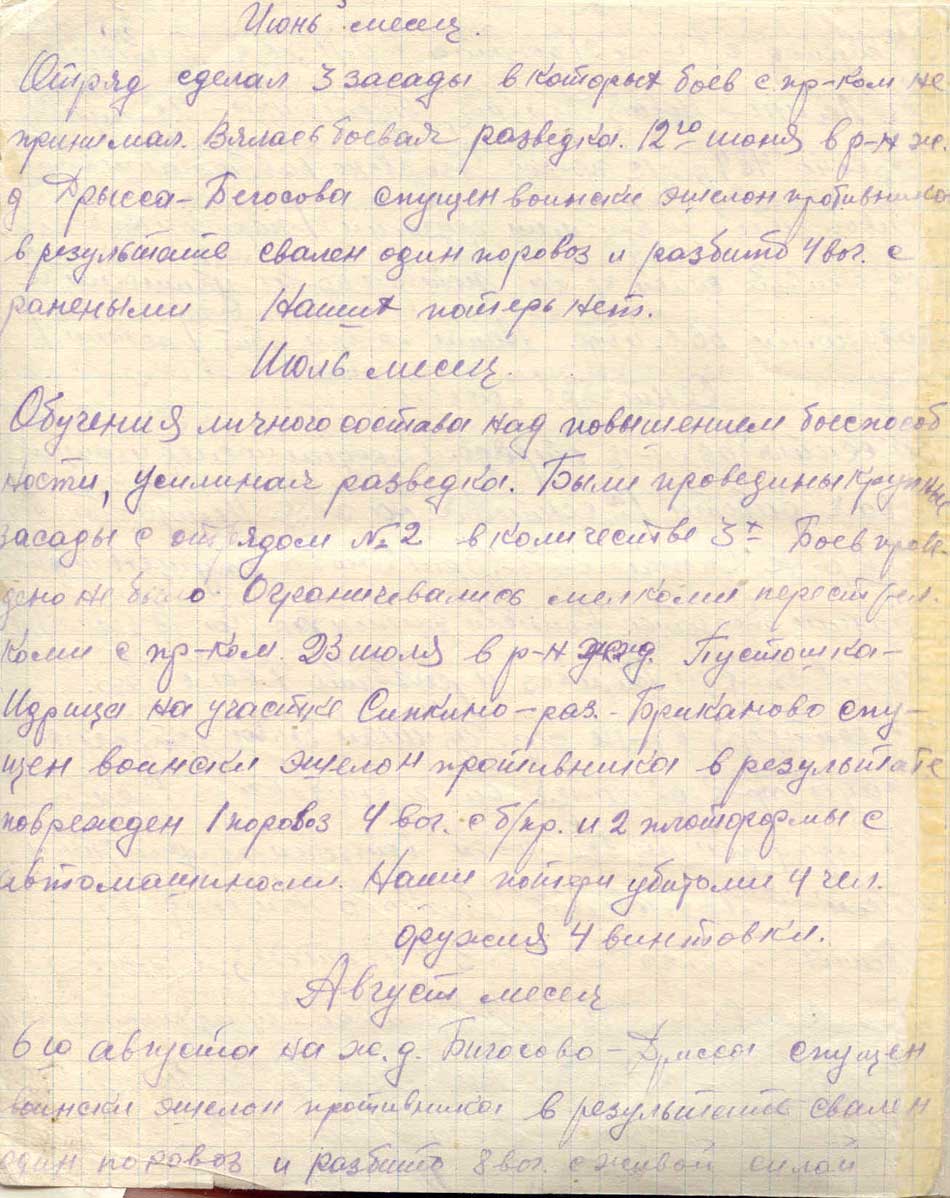 Июнь месец.
Отряд сделал 3 засады в которых боев с пр-ком не
принимал. Вялась боевая разведка. 12го июня в р-н ж.
д Дрысса-Бегосова спущен воински эшелон противника
в результате свален один поровоз и разбито 4 ваг. с
ранеными Наших потерь нет.
Июль месец.
Обучения личного состава над повышением боеспособ
ности, усилиная разведка. Были проведины крупные
засады с отрядом №2 в количестве 3х Боев прове
дено не было. Ограничевались мелкоми перестрел.
коми с пр-ком. 23 июля в р-н ж.д. Пустошка-
Идрица на участке
спу-
щен воински эшелон противника в результате
поврежден 1 поровоз 4 ваг. с б/пр. и 2 плотформы с
автомашиноми. Наши потери убитоми 4 чел.
оружия 4 винтовки.
Август месец
6го августа на ж.д. Бигосово-Дрисса спущен
воински эшелон противника в результате свален
один поровоз и разбито 8 ваг. с живой силой